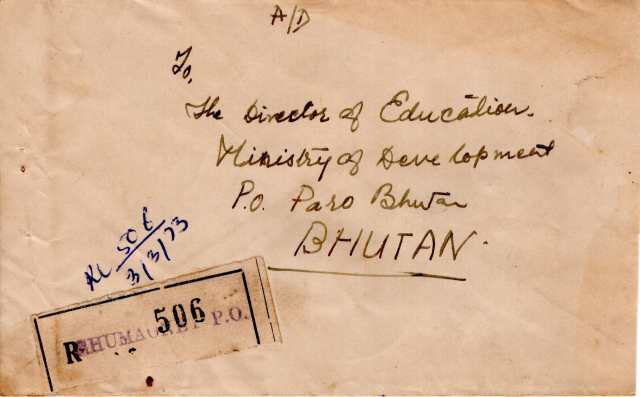 A/D
To,
The Director of Education.
Ministry of Development
P.O. Paro Bhutan
BHUTAN.
RL 506
3/3/73
R 506
P.O.